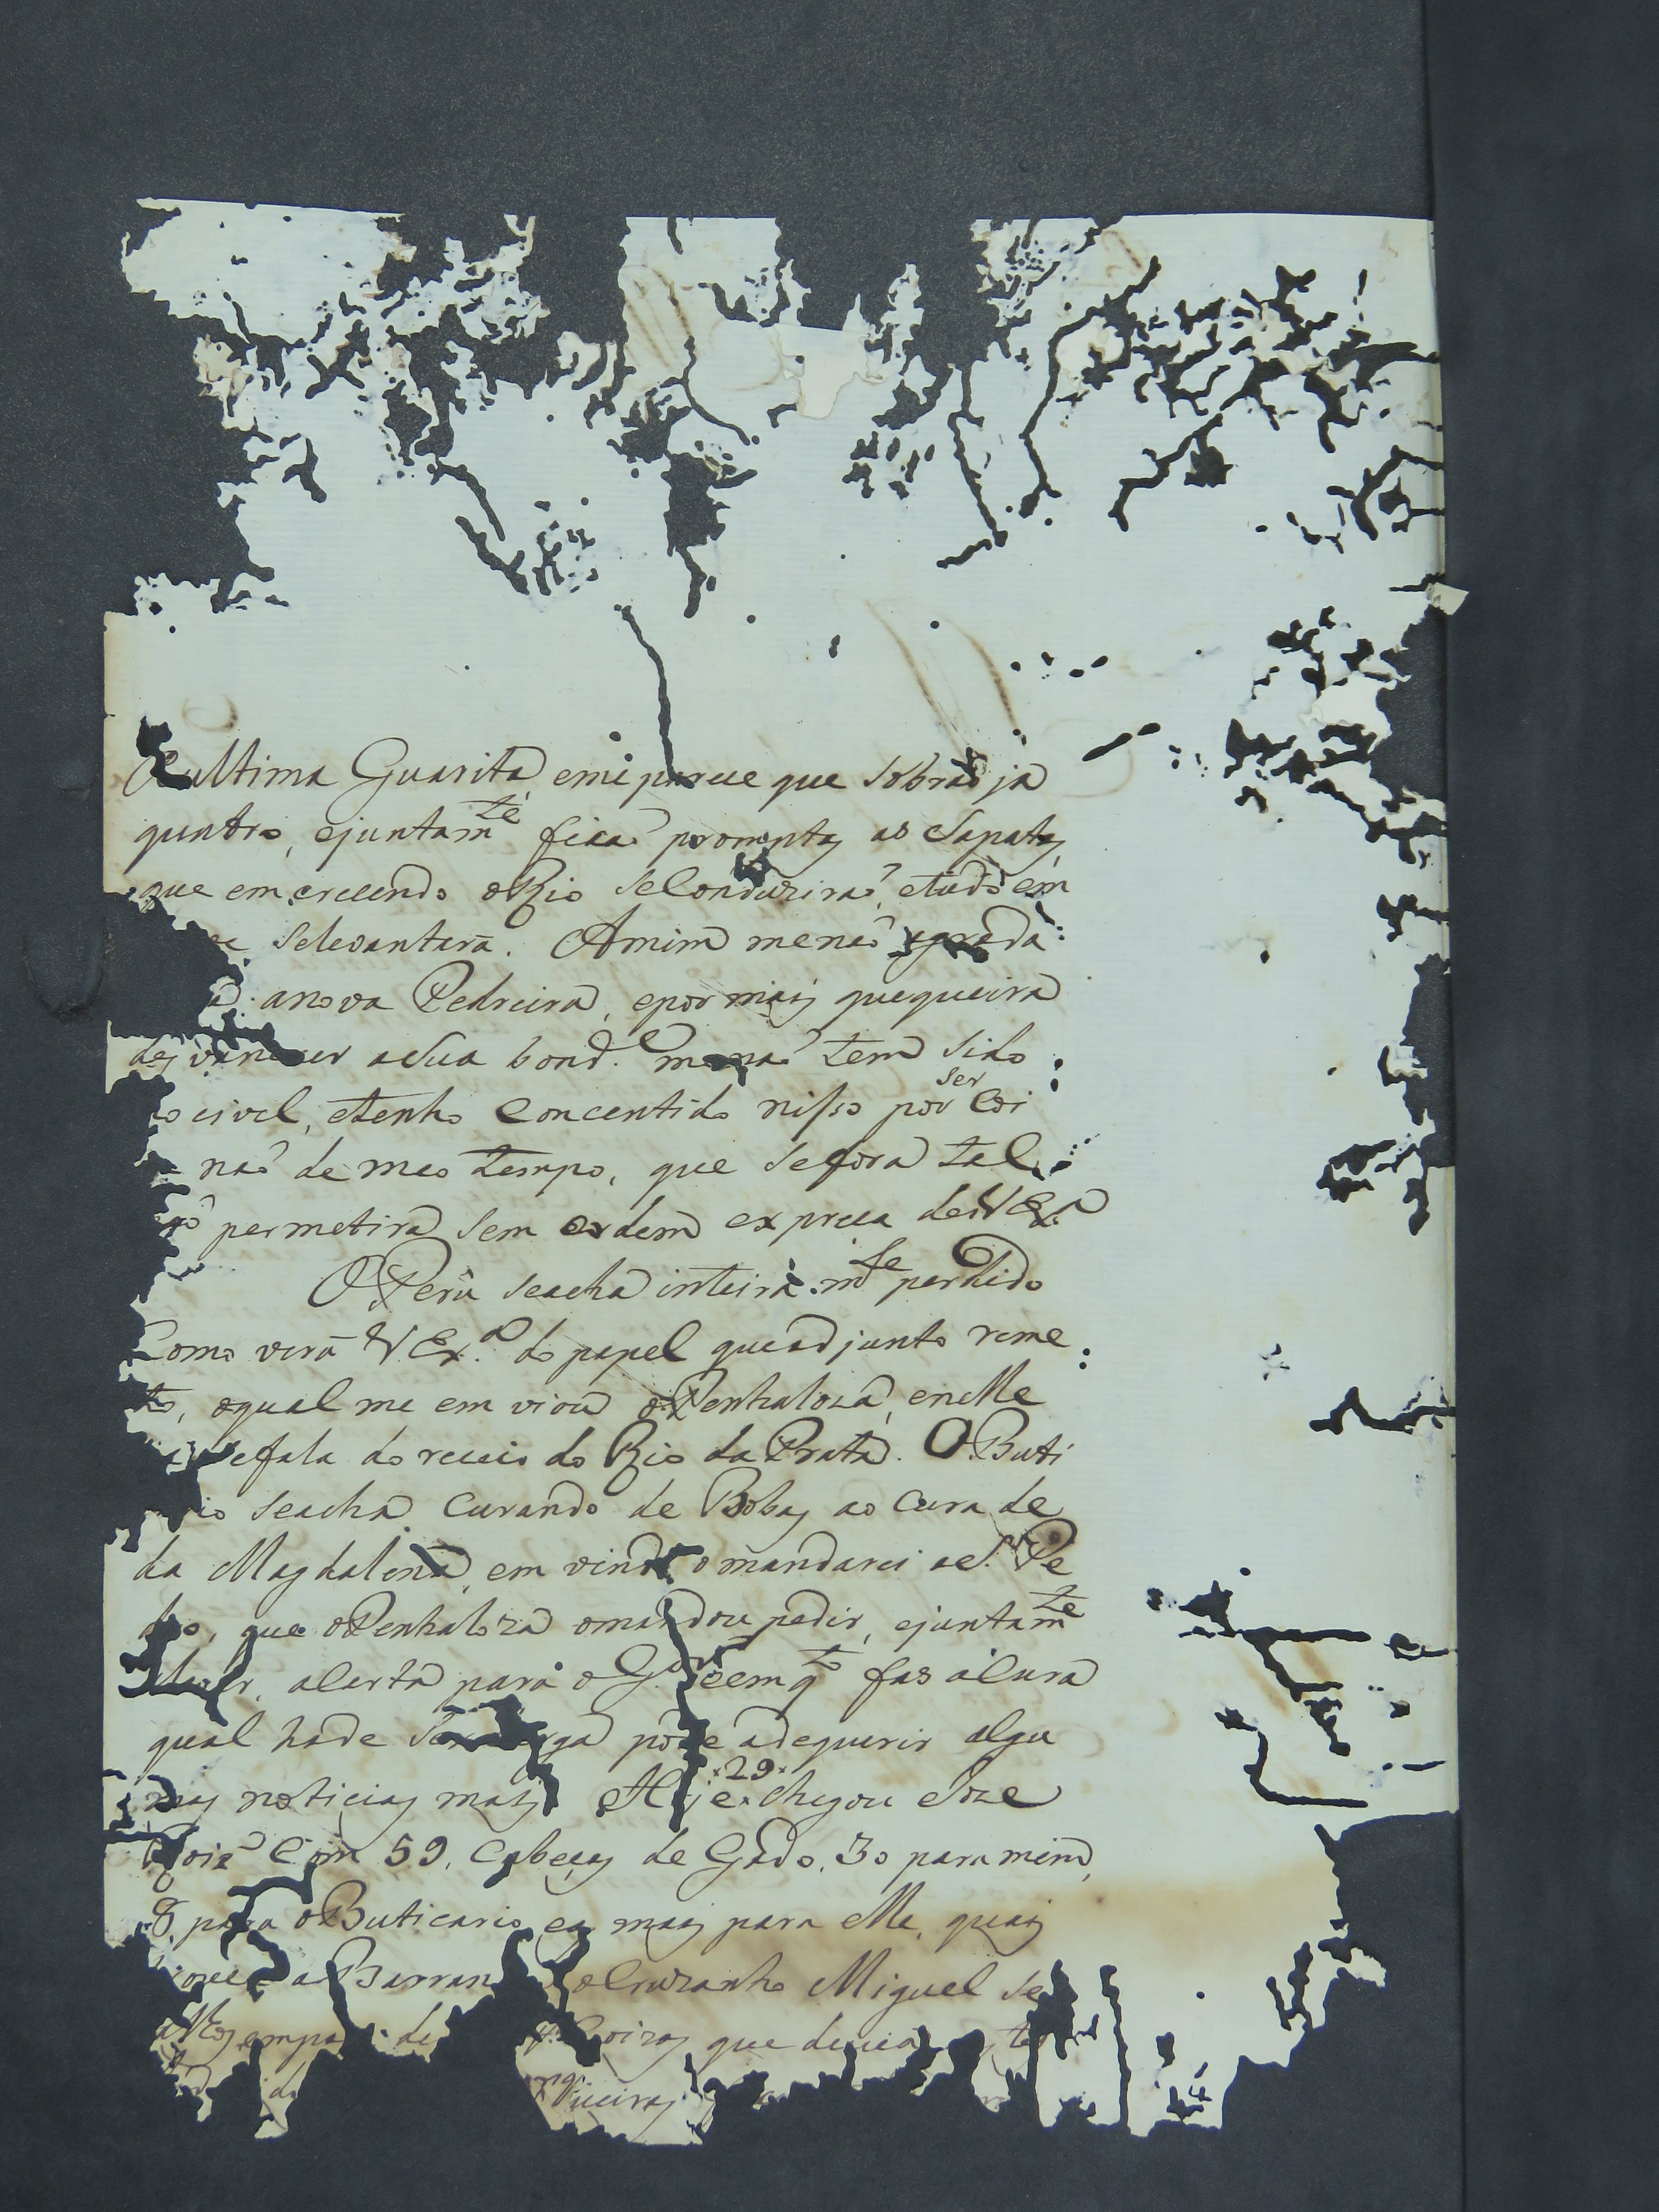 ultima Guarita, emeparece que sobraõ ja
quatro, ejuntam.te ficaõ promptas as Sapatas,
que em crecendo oRio seConduziraõ, etudo em
selevantará. Amim menaõ agrada
anova Pedreira, epormais quequeira
desvanecer asua bond.e menaõ tem sido
civel, etenho concentido nisso por ser Coi
naõ de meo tempo, que sefora tal
permetira sem ordem expreca deVEx.a
OPerû seacha inteira.m.te perdido
Como verá VEx.a do papel queadjunto reme
to, oqual me em viou oPenhaloza, enelle
sefala do receio do Rio da Prata. OButi
rio seacha Curando de Bobas ao Cura de
da Magdalena, em vindo omandarei aS. Pe
dro, que oPenhaloza omandou pedir, ejuntam.te
alerta para o G.or eemq.to fas aCura
qual hade ser larga póde adequirir algu
mas noticias mais. Hoje 29 chegou Joze
Com 59. Cabeças de Gado, 30 para mim,
8, para oButicario, eas mais para elle, quais
a Barran oCruzanho Miguel se
de Coizas que